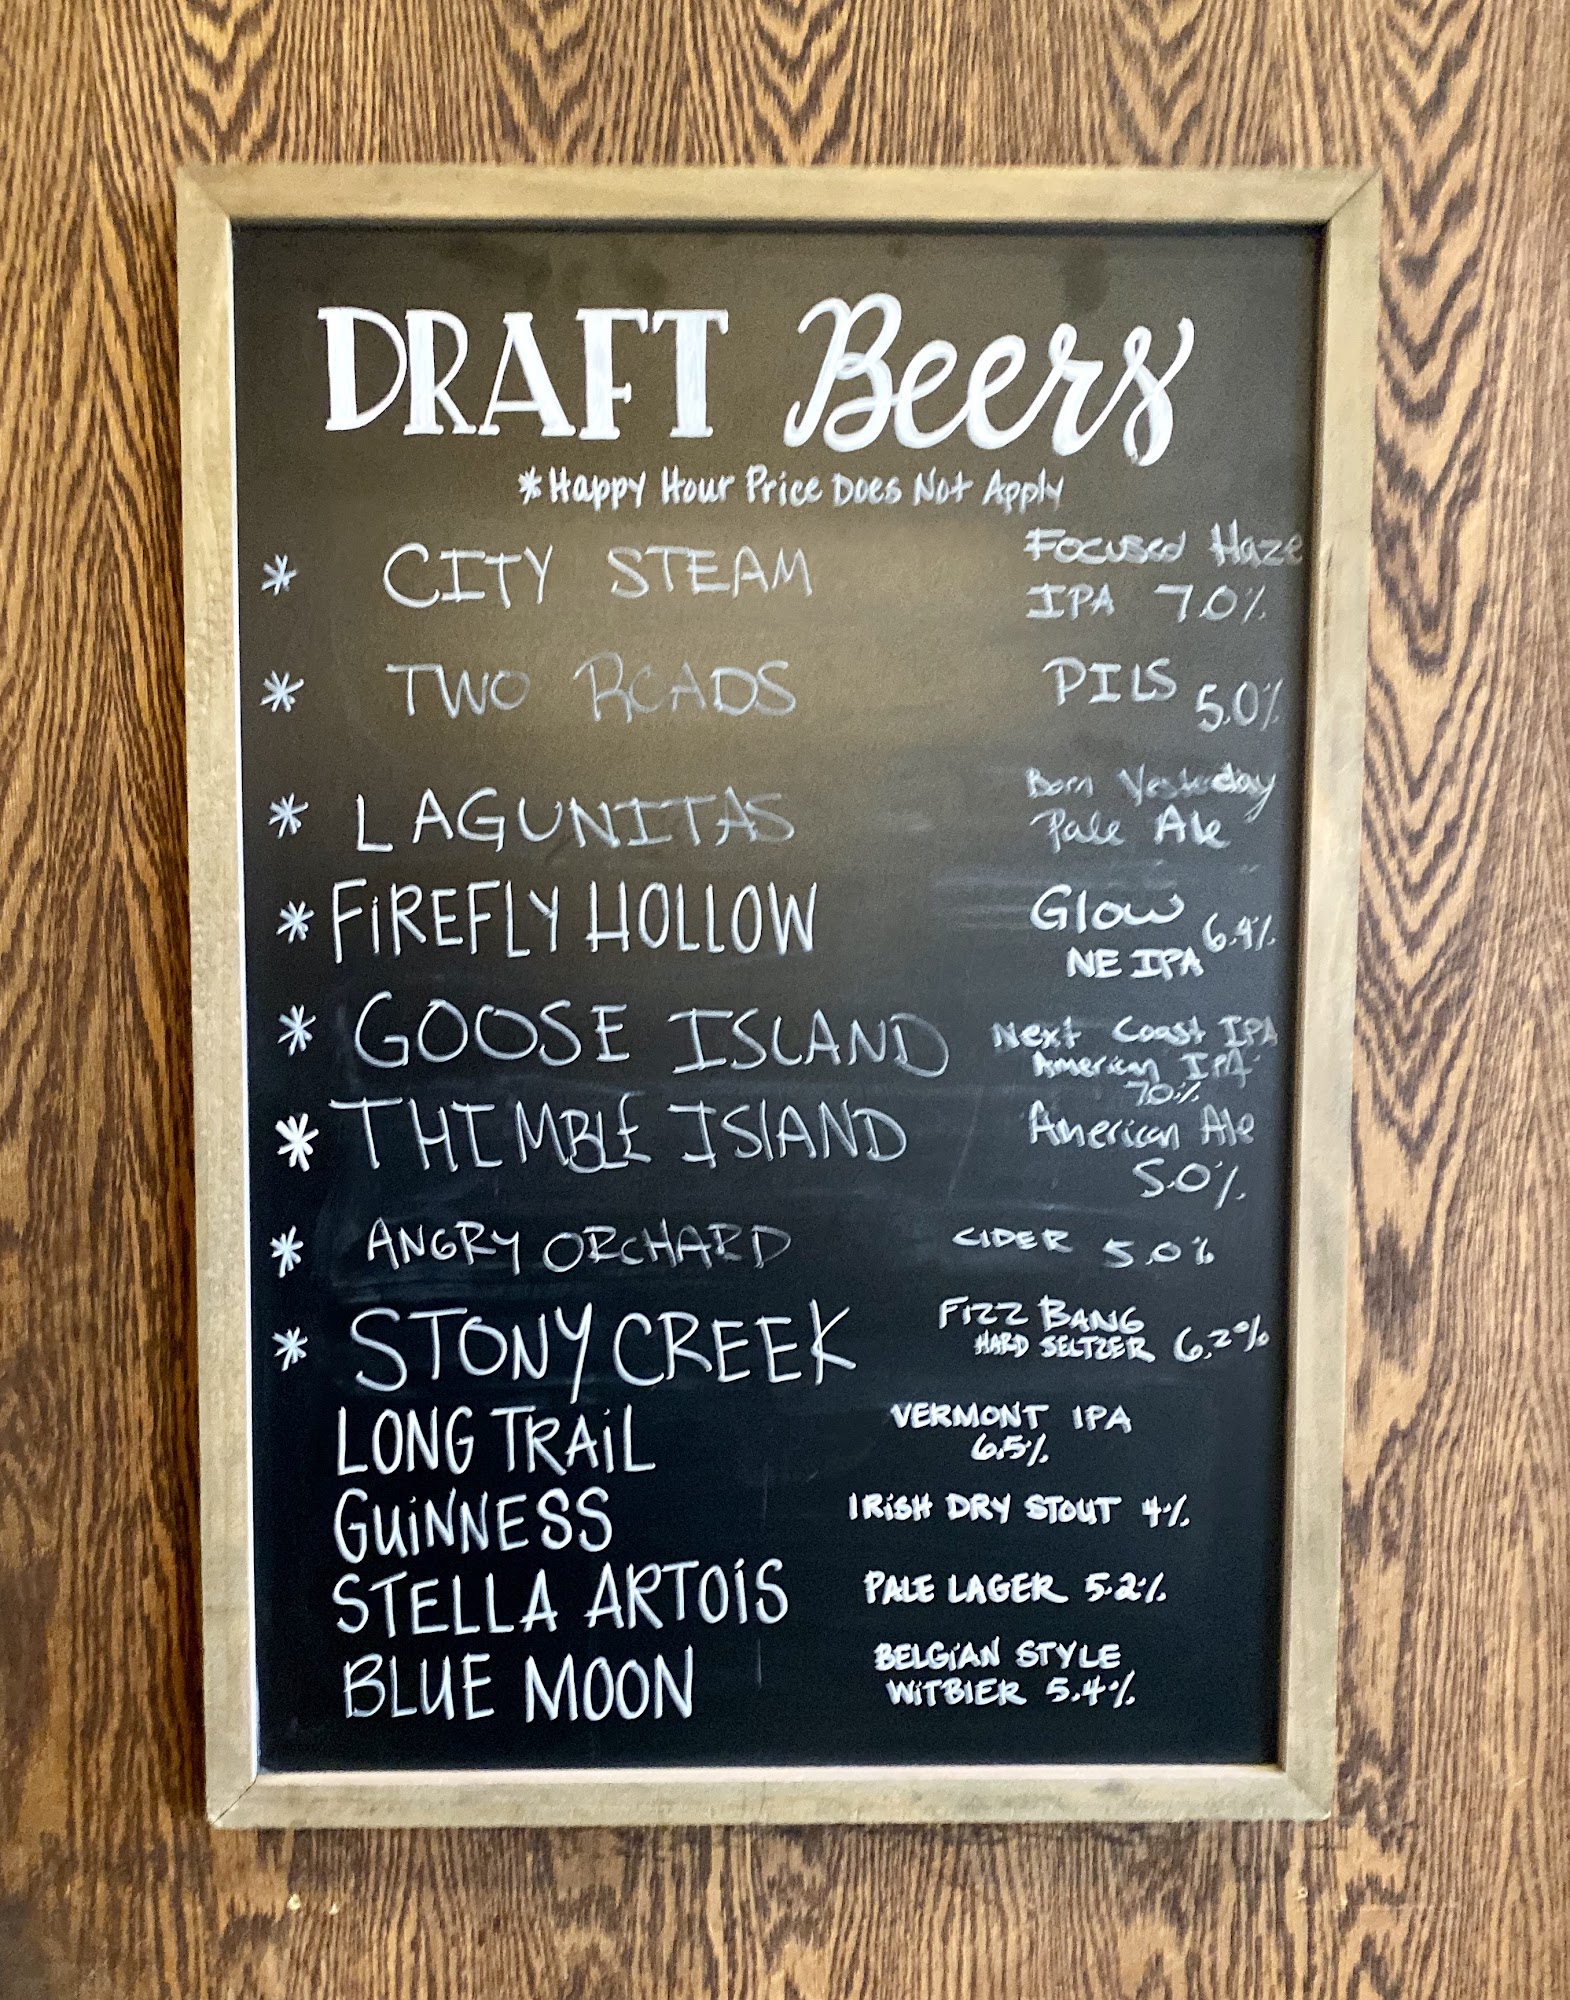 DRAFT Beers
*Happy Hour Price Does Not Apply
* CITY STEAM Focused Haze
IPA 7.0%
* TWO ROADS PILS 5.0%
* LAGUNITAS Born Yesterday
Pale Ale
* FiREFLY HOLLOW Glow 6.4%
NE IPA
* GOOSE ISLAND Next Coast IPA
American IPA
7.0%
* THIMBLE ISLAND American Ale
5.0%
* ANGRY ORCHARD CIDER 5.0%
* STONY CREEK FIZZ BANG
HARD SELTZER 6.2%
LONG TRAiL VERMONT IPA
6.5%
GUiNNESS IRiSH DRY STOUT 4%
STELLA ARTOiS PALE LAGER 5.2%
BLUE MOON BELGiAN STYLE
WiTBIER 5.4%